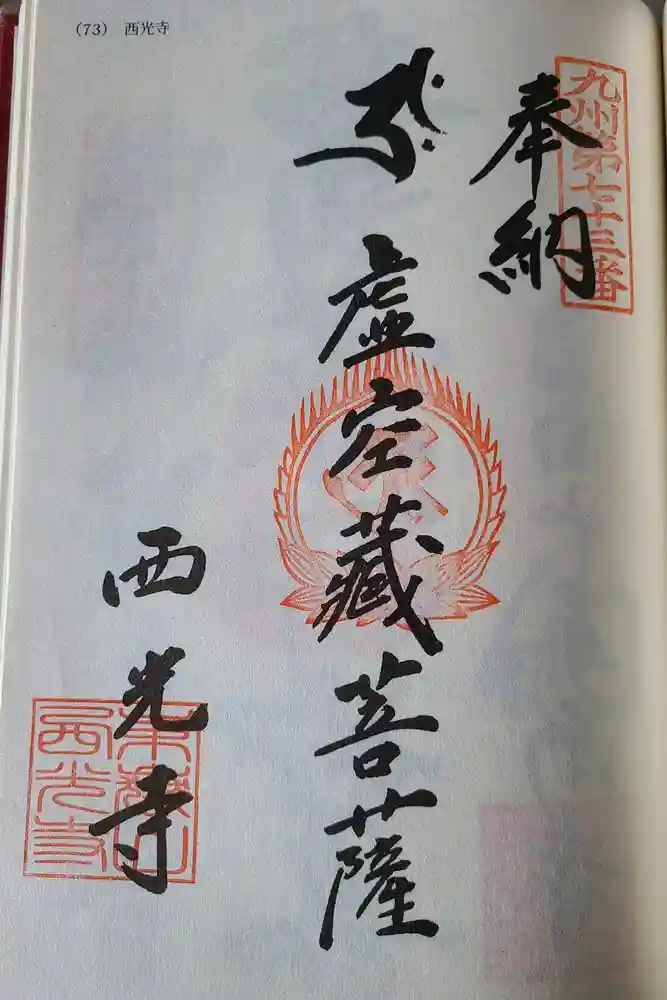 (73) 西光寺
九州第七十三番
奉納
虚空藏菩薩
西光寺
西光寺